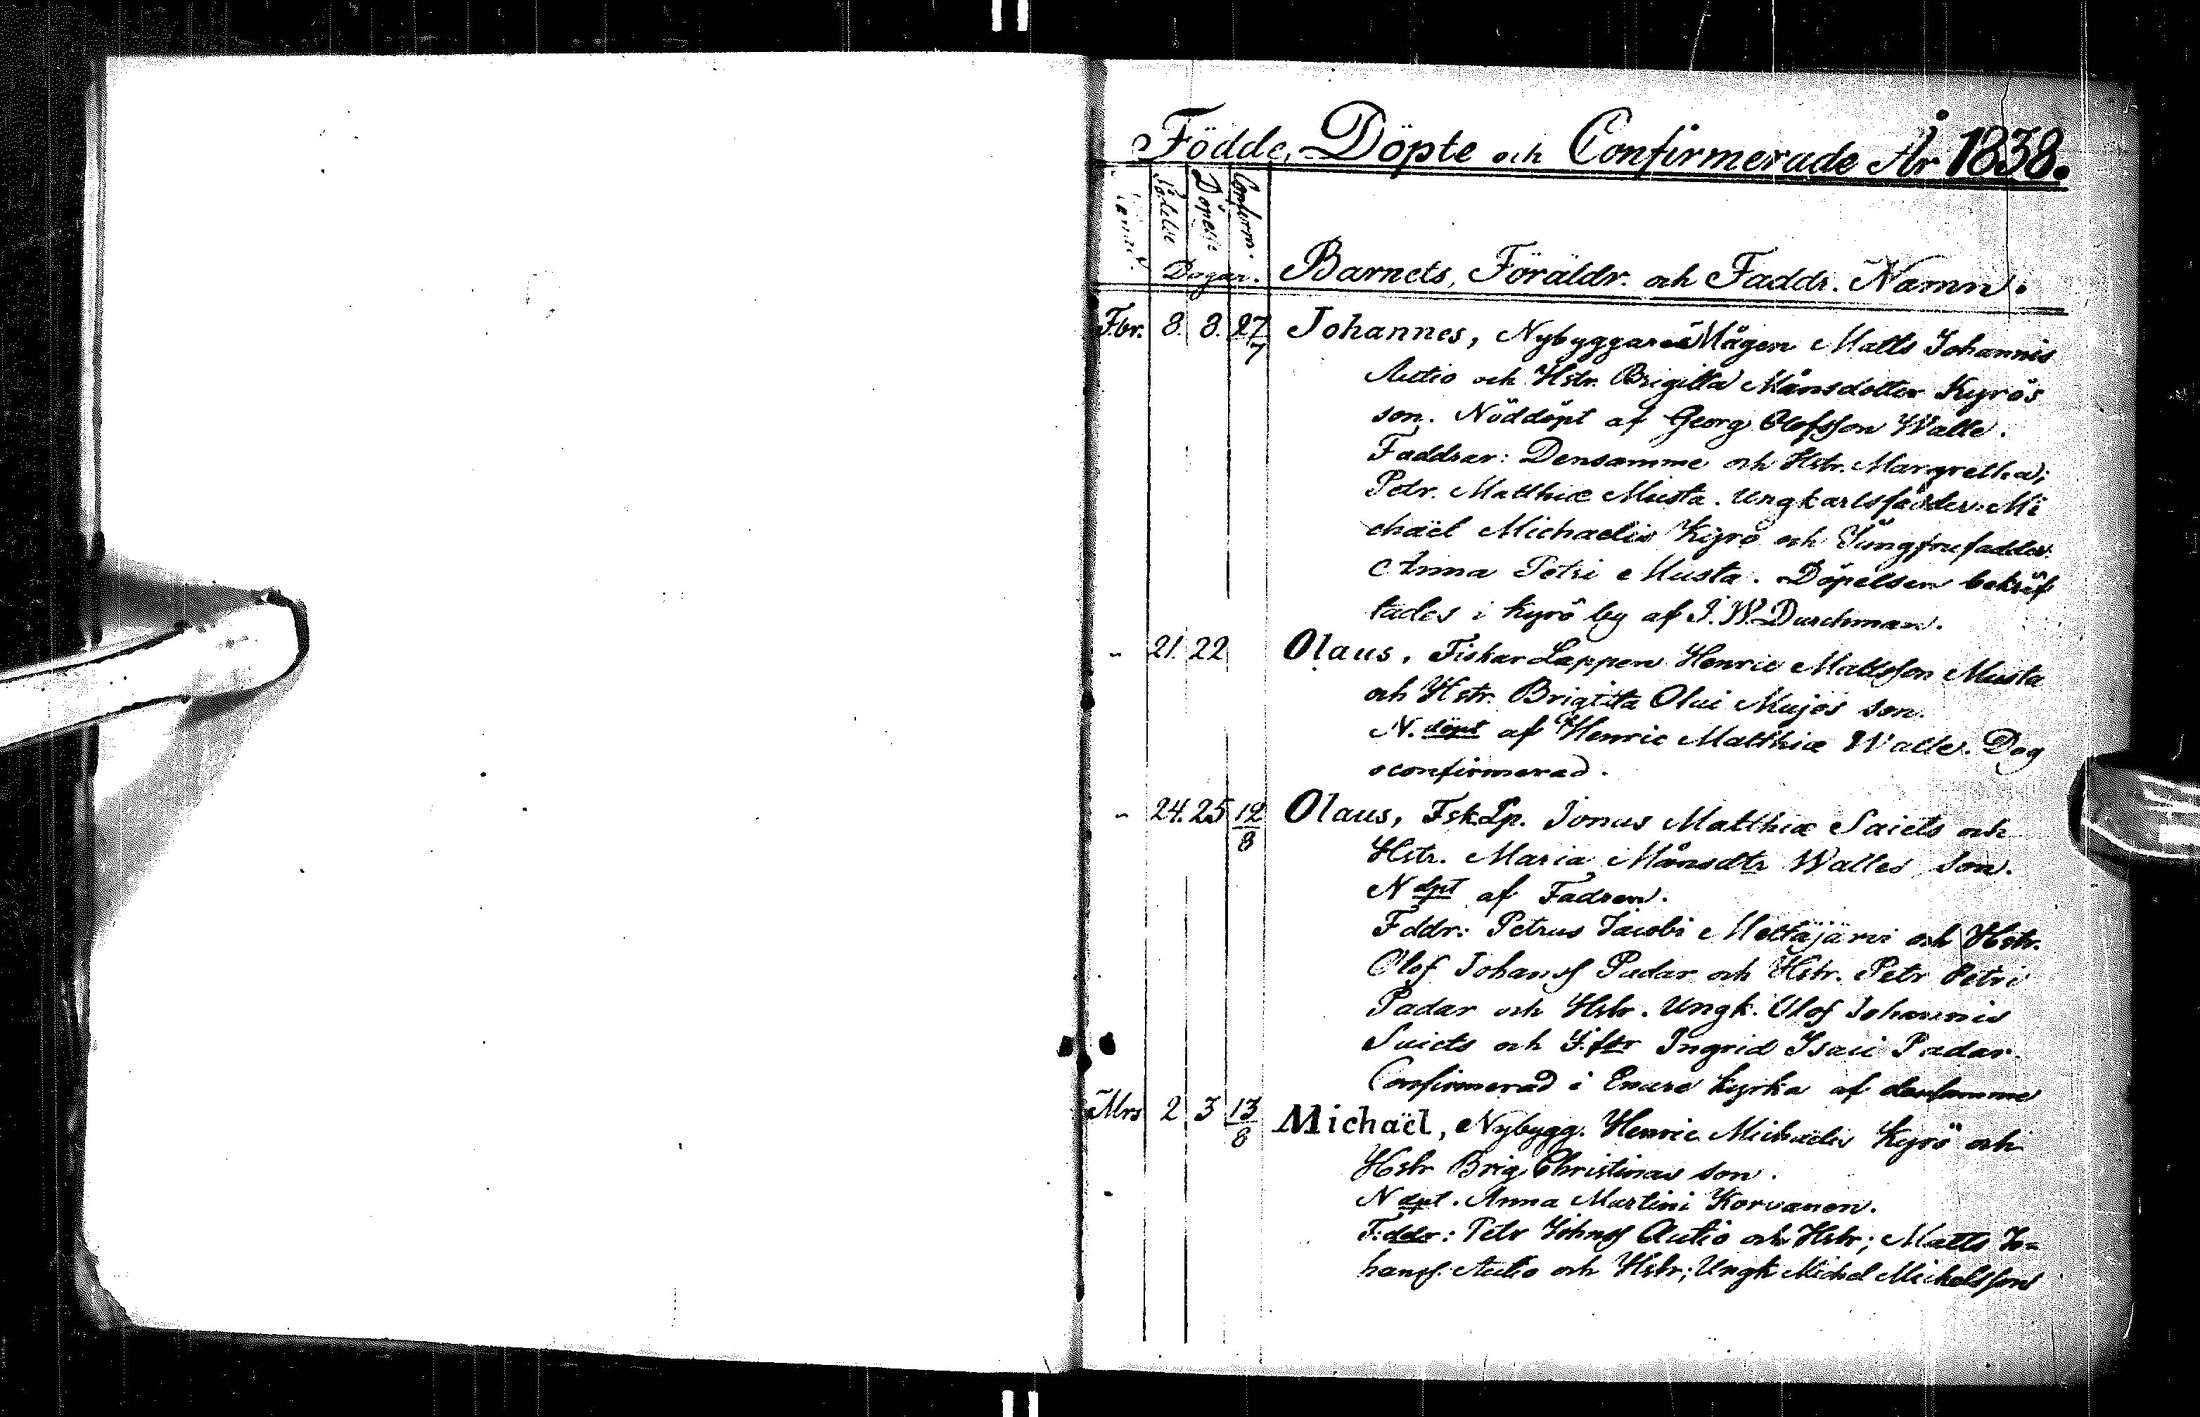 Födde, Döpte och Confirmerade År 1838.
Födelse Döpelse Confirm.
Dagar. Barnets, Föräldr. och Faddr. Namn.
Fbr. 8. 8. 27/7 Johannes, Nybyggare Mågen Matts Johannis
Autio och Hstr. Brigitta Månsdotter Kyrös
son. Nöddöpt af Georg Olofsson Walle.
Faddrar: Densamme och Hstr. Margretha;
Petr. Matthiæ Musta. Ungkarlsfadder: Mi
chaël Michaelis Kyrö och Jungfrufadder
Anna Petri Musta. Döpelsen bekräf
tades i Kyrö by af J. W. Durchman.
" 21. 22 Olaus, Fiskar Lappen Henric Mattsson Musta
och Hstr. Brigitta Olai Mujos son.
N. döpt af Henric Matthiæ Walle. Dog
oconfirmerad.
" 24. 25 12/8 Olaus, Fsk.Lp. Jonas Matthiæ Saiets och
Hstr. Maria Månsdtr Walles son.
N dpt af Fadren.
Fddr: Petrus Jacobi Mettäjärvi och Hstr.
Olof Johanss Padar och Hstr. Petr Petri
Padar och Hstr. Ungk. Olof Johannis
Saiets och J.fbr Ingrid Isaci Padar.
Confirmerad i Enare kyrka af densamme
Mrs 2 3 13/8 Michaël, Nybygg. Henric Michaelis Kyrö och
Hstr Brig Christinas son.
N dpt. Anna Martini Korvanen.
F:ddr: Petr Johnss Autio och Hstr; Matts Jo=
hanss. Autio och Hstr; Ungk Michel Michelsson